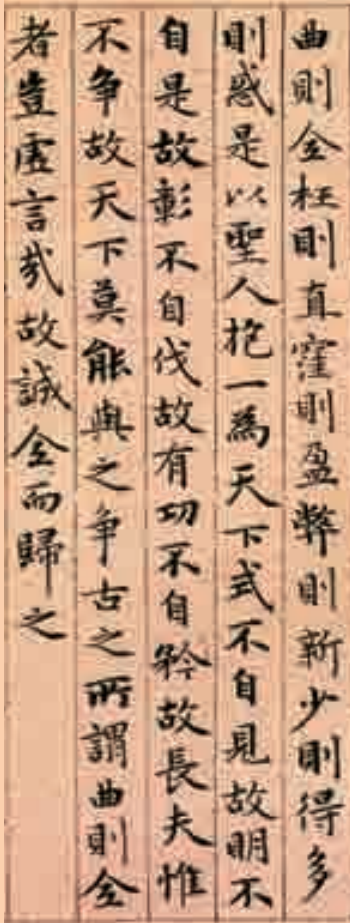 曲則全枉則直窪則盈弊則新少則得多
則惑是以聖人抱一為天下式不自見故明不
自是故彰不自伐故有功不自矜故長夫惟
不争故天下莫能與之争古之所謂曲則全
者豈虛言哉故誠全而歸之